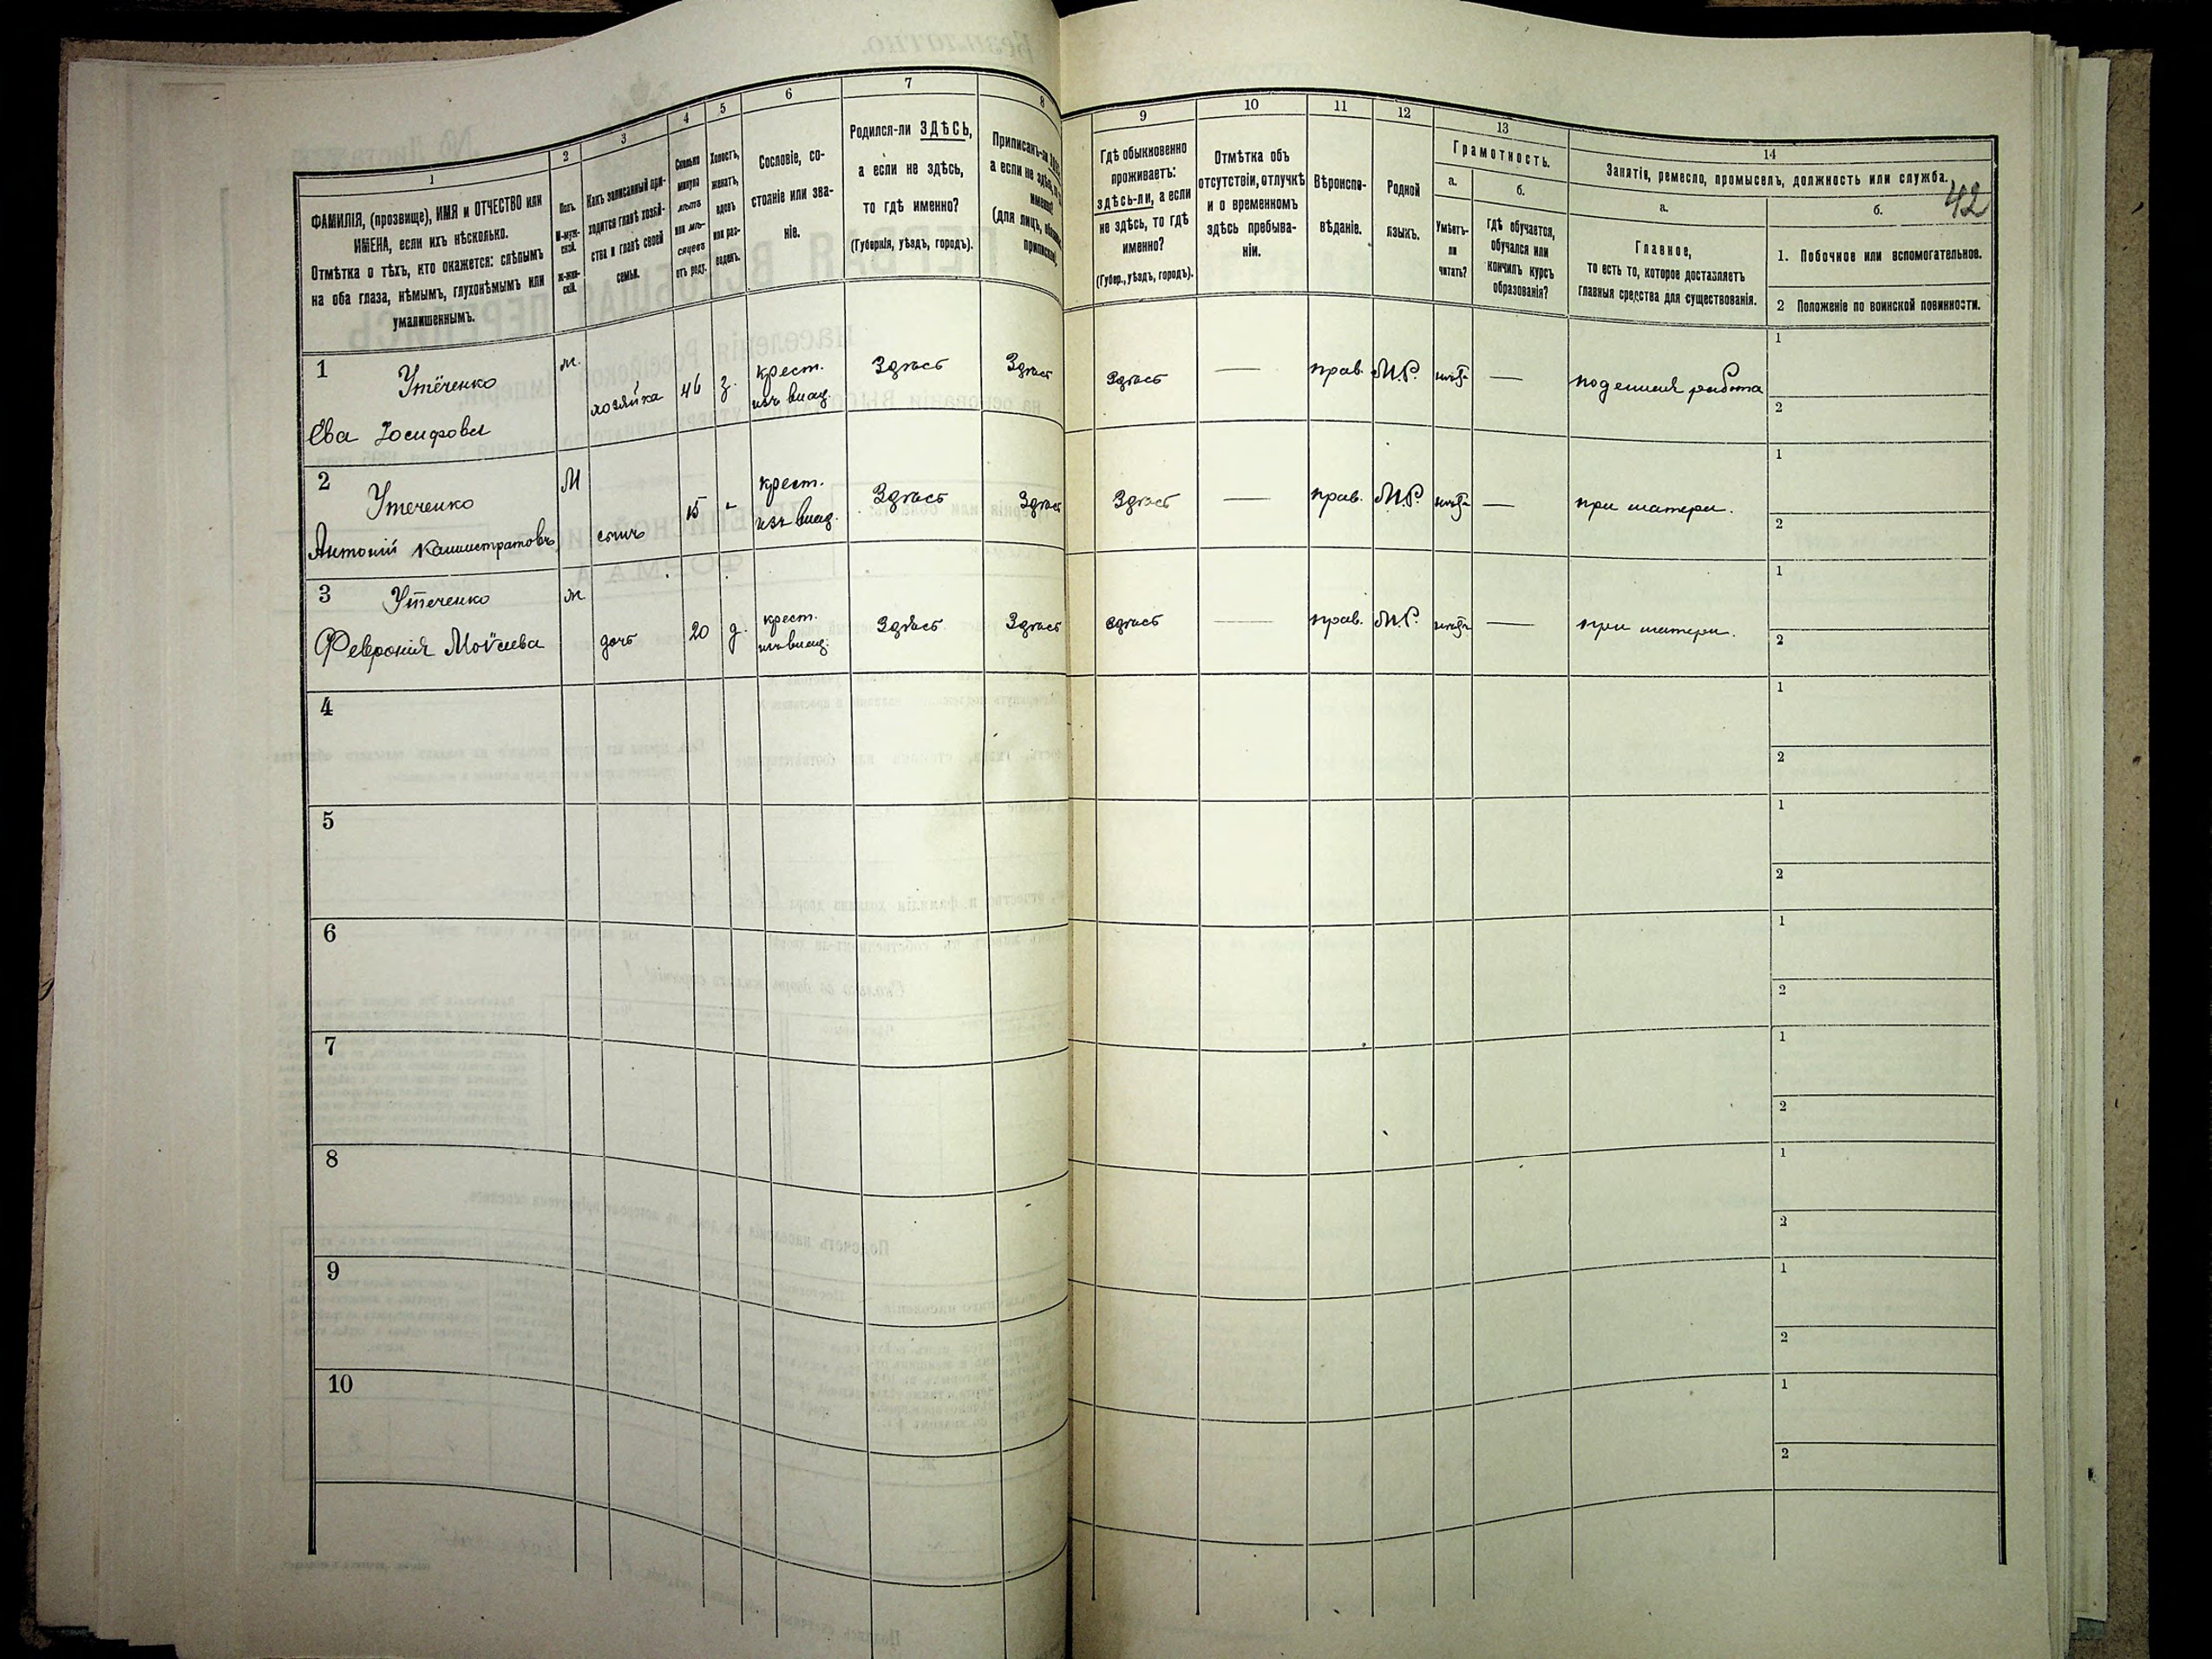 1
2
3
4
5
6
7
8
ФАМИЛІЯ, (прозвище), ИМЯ и ОТЧЕСТВО или
ИМЕНА, если ихъ нѣсколько.
Отмѣтка о тѣхъ, кто окажется: слѣпымъ
на оба глаза, нѣмымъ, глухонѣмымъ или
умалишеннымъ.
Полъ.
М-муж-
ской.
Ж-жен-
скій.
Какъ записанный при-
ходится главѣ хозяй-
ства и главѣ своей
семьи.
Сколько
минуло
лѣтъ
или мѣ-
сяцевъ
отъ роду.
Холостъ,
женатъ,
вдовъ
или раз-
веденъ.
Сословіе, со-
стояніе или зва-
ніе.
Родился-ли ЗДѢСЬ,
а если не здѣсь,
то гдѣ именно?
(Губернія, уѣздъ, городъ).
Приписанъ-ли
а если не здѣсь,
именно?
(для лицъ,
9
10
11
12
13
14
Гдѣ обыкновенно
проживаетъ:
здѣсь-ли, а если
не здѣсь, то гдѣ
именно?
(Губер., уѣздъ, городъ).
Отмѣтка объ
отсутствіи, отлучкѣ
и о временномъ
здѣсь пребыва-
ніи.
Вѣроиспо-
вѣданіе.
Родной
языкъ.
Грамотность.
а.
Умѣетъ-
ли
читать?
б.
Гдѣ обучается,
обучался или
кончилъ курсъ
образованія?
Занятія, ремесло, промыселъ, должность или служба.
42
а.
Главное,
то есть то, которое доставляетъ
главныя средства для существованія.
б.
1. Побочное или вспомогательное.
2 Положеніе по воинской повинности.
1 Утёченко
Ева Іосифова
ж. хозяйка 46 з. крест.
изъ влад.
Здѣсь Здѣсь Здѣсь — прав. М.Р. нѣтъ — поденная работа
1
2
2 Утеченко
Антоній Каллистратовъ
М сынъ 15 - крест.
изъ влад.
Здѣсь Здѣсь Здѣсь — прав. М.Р. нѣтъ — при матери.
1
2
3 Утеченко
Феврония Моѵсиева
ж дочь 20 д. крест.
изъ влад.
Здѣсь Здѣсь Здѣсь — прав. М.Р. нѣтъ — при матери.
1
2
4
1
2
5
1
2
6
1
2
7
1
2
8
1
2
9
1
2
10
1
2